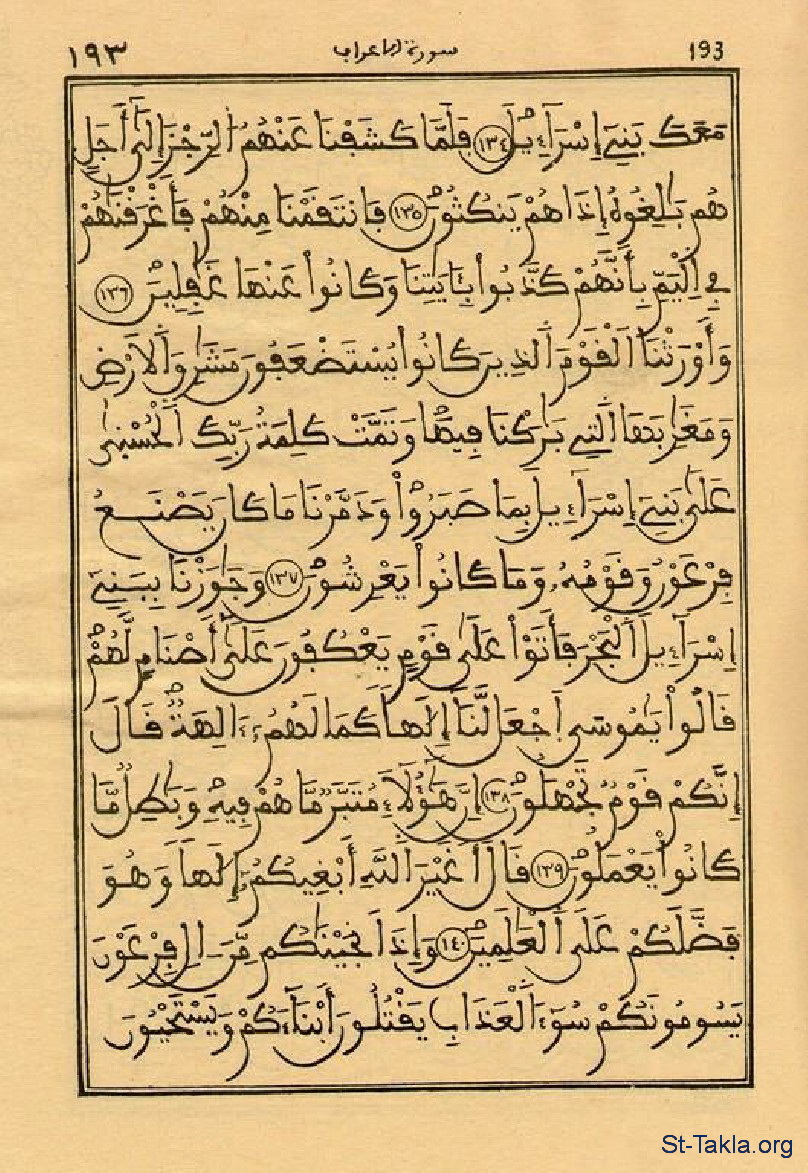 ١٩٣ سورة الاعراف 193
مَعَكَ بَنِےٓ إِسْرَآءِيلَ ١٣٤ فَلَمَّا كَشَفْنَا عَنْهُمُ الرِّجْزَ إِلَىٰٓ أَجَلٍ
هُم بَٰلِغُوهُ إِذَا هُمْ يَنكُثُونَ ١٣٥ فَانتَقَمْنَا مِنْهُمْ فَأَغْرَقْنَٰهُمْ
فِے اِلْيَمِّ بِأَنَّهُمْ كَذَّبُوا۟ بِـَٔايَٰتِنَا وَكَانُوا۟ عَنْهَا غَٰفِلِينَ ١٣٦
وَأَوْرَثْنَا اَلْقَوْمَ اَلذِينَ كَانُوا۟ يُسْتَضْعَفُونَ مَشَٰرِقَ اَلَارْضِ
وَمَغَٰرِبَهَا اَلتِے بَٰرَكْنَا فِيهَا وَتَمَّتْ كَلِمَةُ رَبِّكَ اَلْحُسْنَىٰ
عَلَىٰ بَنِےٓ إِسْرَآءِيلَ بِمَا صَبَرُوا۟ وَدَمَّرْنَا مَا كَانَ يَصْنَعُ
فِرْعَوْنُ وَقَوْمُهُۥ وَمَا كَانُوا۟ يَعْرِشُونَ ١٣٧ وَجَٰوَزْنَا بِبَنِےٓ
إِسْرَآءِيلَ اَلْبَحْرَ فَأَتَوْا۟ عَلَىٰ قَوْمٍ يَعْكُفُونَ عَلَىٰٓ أَصْنَامٍ لَّهُمْ
قَالُوا۟ يَٰمُوسَى اَجْعَل لَّنَآ إِلَٰهًا كَمَا لَهُمُۥٓ ءَالِهَةٌ قَالَ
إِنَّكُمْ قَوْمٌ تَجْهَلُونَ ١٣٨ إِنَّ هَٰٓؤُلَآءِ مُتَبَّرٌ مَّا هُمْ فِيهِ وَبَٰطِلٌ مَّا
كَانُوا۟ يَعْمَلُونَ ١٣٩ قَالَ أَغَيْرَ اَللَّهِ أَبْغِيكُمُۥٓ إِلَٰهًا وَهُوَ
فَضَّلَكُمْ عَلَى اَلْعَٰلَمِينَ ١٤٠ وَإِذَ اَنجَيْنَٰكُم مِّنَ ـالِ فِرْعَوْنَ
يَسُومُونَكُمْ سُوٓءَ اَلْعَذَابِ يَقْتُلُونَ أَبْنَآءَكُمْ وَيَسْتَحْيُونَ
St-Takla.org